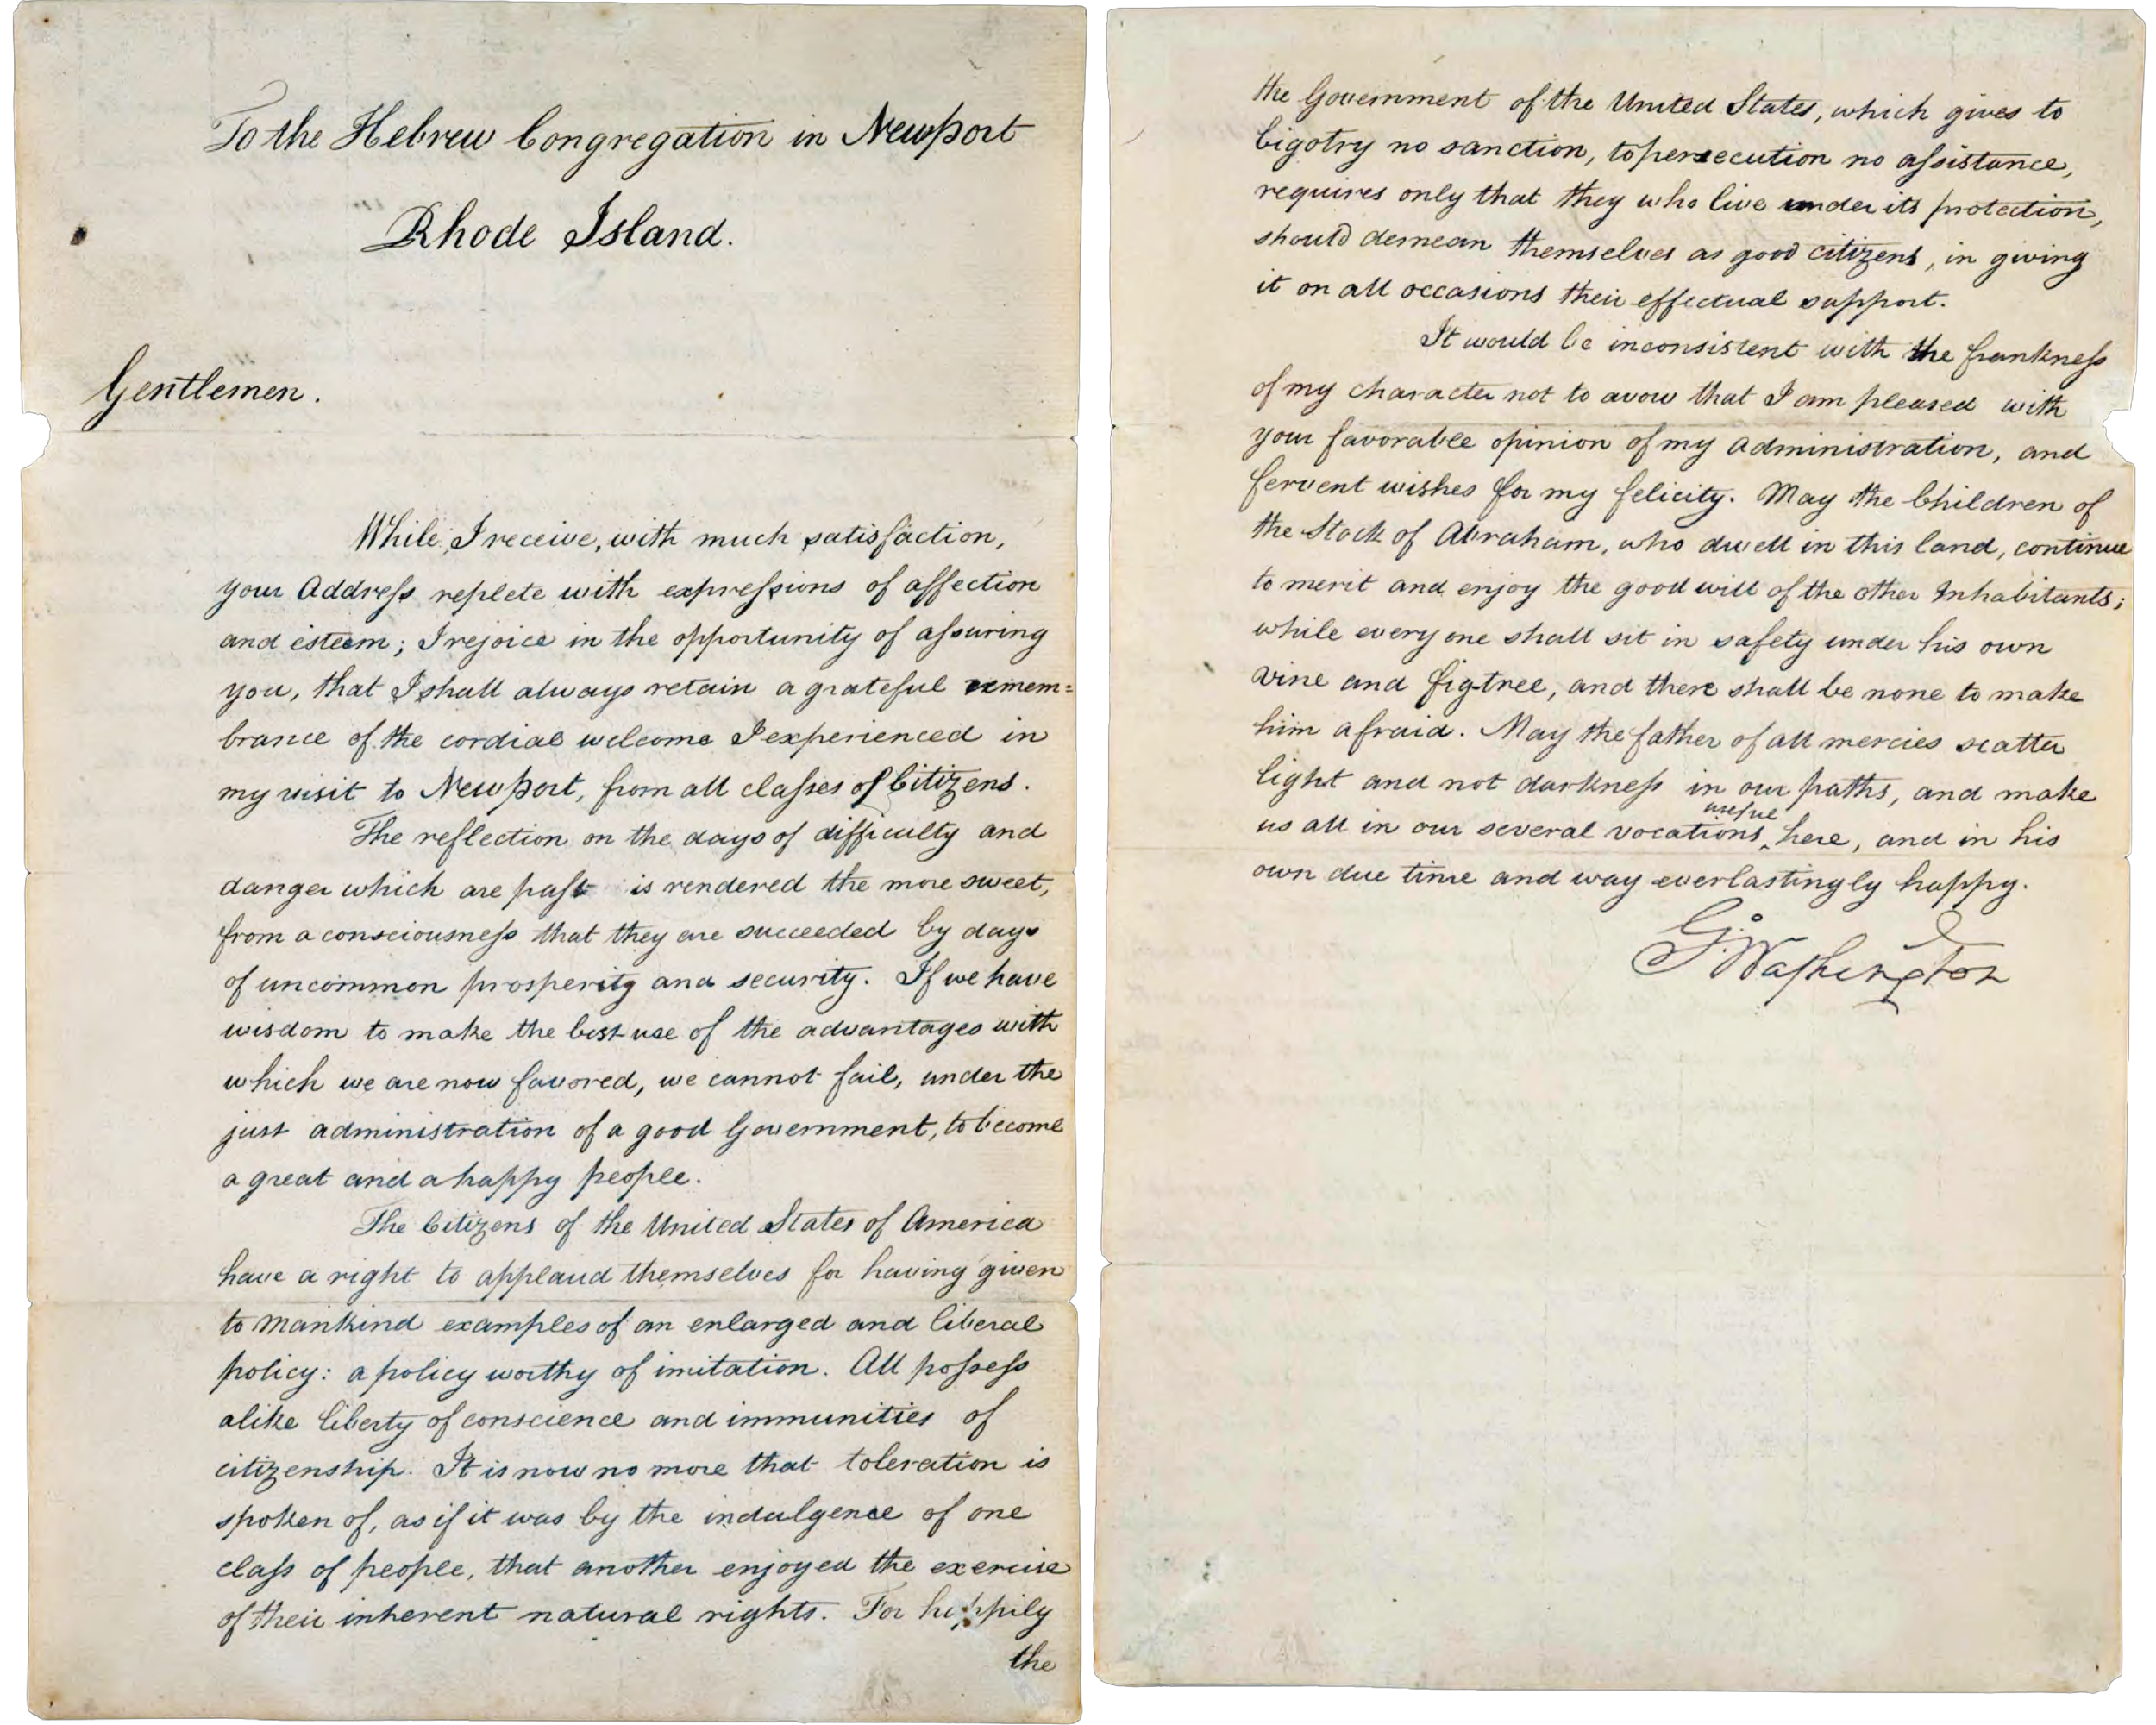 To the Hebrew Congregation in Newport
Rhode Island.
Gentlemen.
While, I receive, with much satisfaction,
your Address replete with expressions of affection
and esteem; I rejoice in the opportunity of assuring
you, that I shall always retain a grateful remem=
brance of the cordial welcome I experienced in
my visit to Newport, from all classes of Citizens.
The reflection on the days of difficulty and
danger which are past is rendered the more sweet,
from a consciousness that they are succeeded by days
of uncommon prosperity and security. If we have
wisdom to make the best use of the advantages with
which we are now favored, we cannot fail, under the
just administration of a good Government, to become
a great and a happy people.
The Citizens of the United States of America
have a right to applaud themselves for having given
to mankind examples of an enlarged and liberal
policy: a policy worthy of imitation. All possess
alike liberty of conscience and immunities of
citizenship. It is now no more that toleration is
spoken of, as if it was by the indulgence of one
class of people, that another enjoyed the exercise
of their inherent natural rights. For happily
the
the Government of the United States, which gives to
bigotry no sanction, to persecution no assistance,
requires only that they who live under its protection,
should demean themselves as good citizens, in giving
it on all occasions their effectual support.
It would be inconsistent with the frankness
of my character not to avow that I am pleased with
your favorable opinion of my administration, and
fervent wishes for my felicity. May the Children of
the Stock of Abraham, who dwell in this land, continue
to merit and enjoy the good will of the other Inhabitants;
while every one shall sit in safety under his own
vine and figtree, and there shall be none to make
him afraid. May the father of all mercies scatter
light and not darkness in our paths, and make
us all in our several vocations useful here, and in his
own due time and way everlastingly happy.
G. Washington